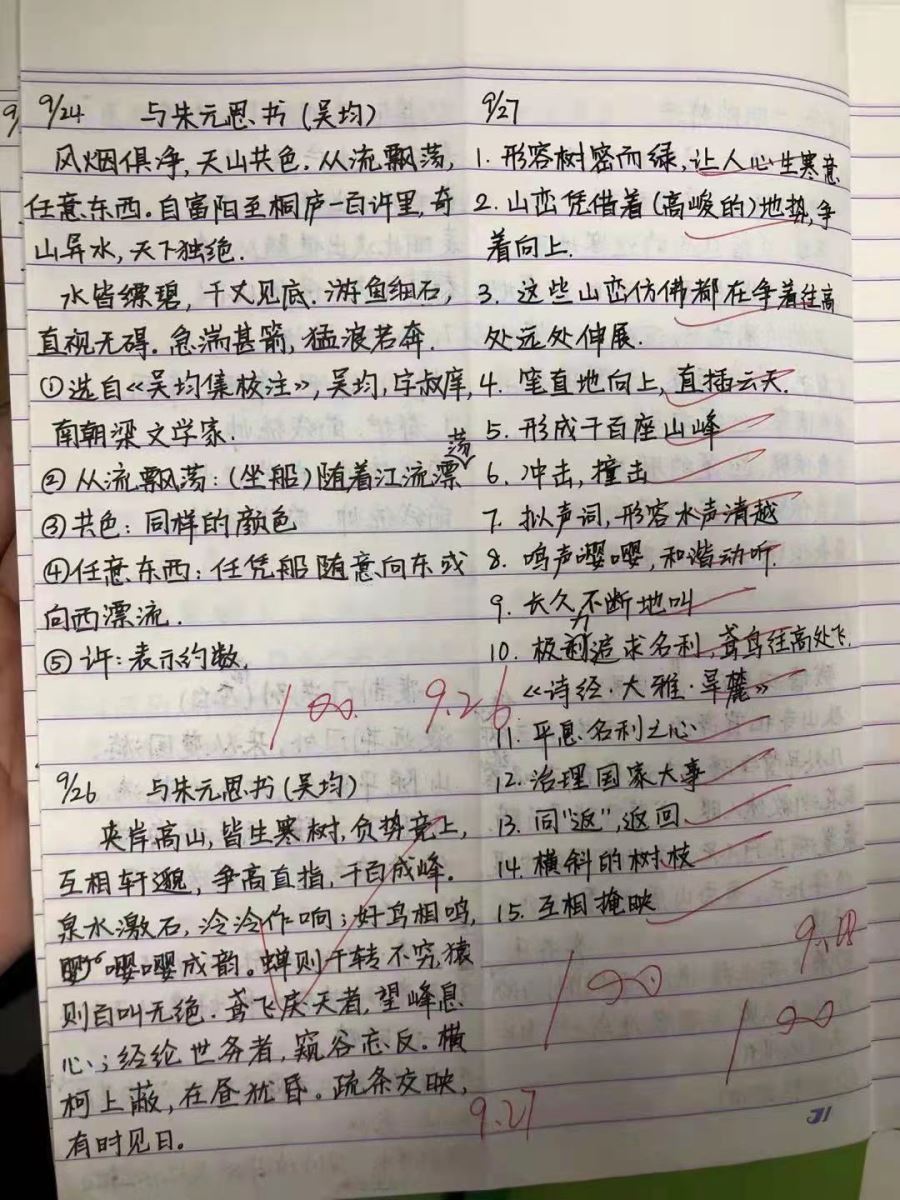 9/24 与朱元思书(吴均)
风烟俱净,天山共色.从流飘荡,
任意东西。自富阳至桐庐一百许里,奇
山异水,天下独绝.
水皆缥碧,千丈见底.游鱼细石,
直视无碍。急湍甚箭,猛浪若奔.
①选自《吴均集校注》,吴均,字叔庠,
南朝梁文学家.
②从流飘荡:(坐船)随着江流漂荡
③共色:同样的颜色
④任意东西:任凭船随意向东或
向西漂流.
⑤许:表示约数.
100. 9.26
9/26 与朱元思书(吴均)
夹岸高山,皆生寒树,负势竞上,
互相轩邈,争高直指,千百成峰。
泉水激石,泠泠作响;好鸟相鸣,
嘤嘤成韵。蝉则千转不穷,猿
则百叫无绝.鸢飞戾天者,望峰息
心;经纶世务者,窥谷忘反。横
柯上蔽,在昼犹昏。疏条交映,
有时见日。
9.27
9/27
1. 形容树密而绿,让人心生寒意
2. 山峦凭借着(高峻的)地势,争
着向上.
3. 这些山峦仿佛都在争着往高
处远处伸展.
4. 笔直地向上,直插云天.
5. 形成千百座山峰
6. 冲击,撞击
7. 拟声词,形容水声清越
8. 鸣声嘤嘤,和谐动听.
9. 长久不断地叫
10. 极力追求名利,鸢鸟往高处飞.
《诗经·大雅·旱麓》
11. 平息名利之心
12. 治理国家大事
13. 同“返”,返回
14. 横斜的树枝
15. 互相掩映
100
100